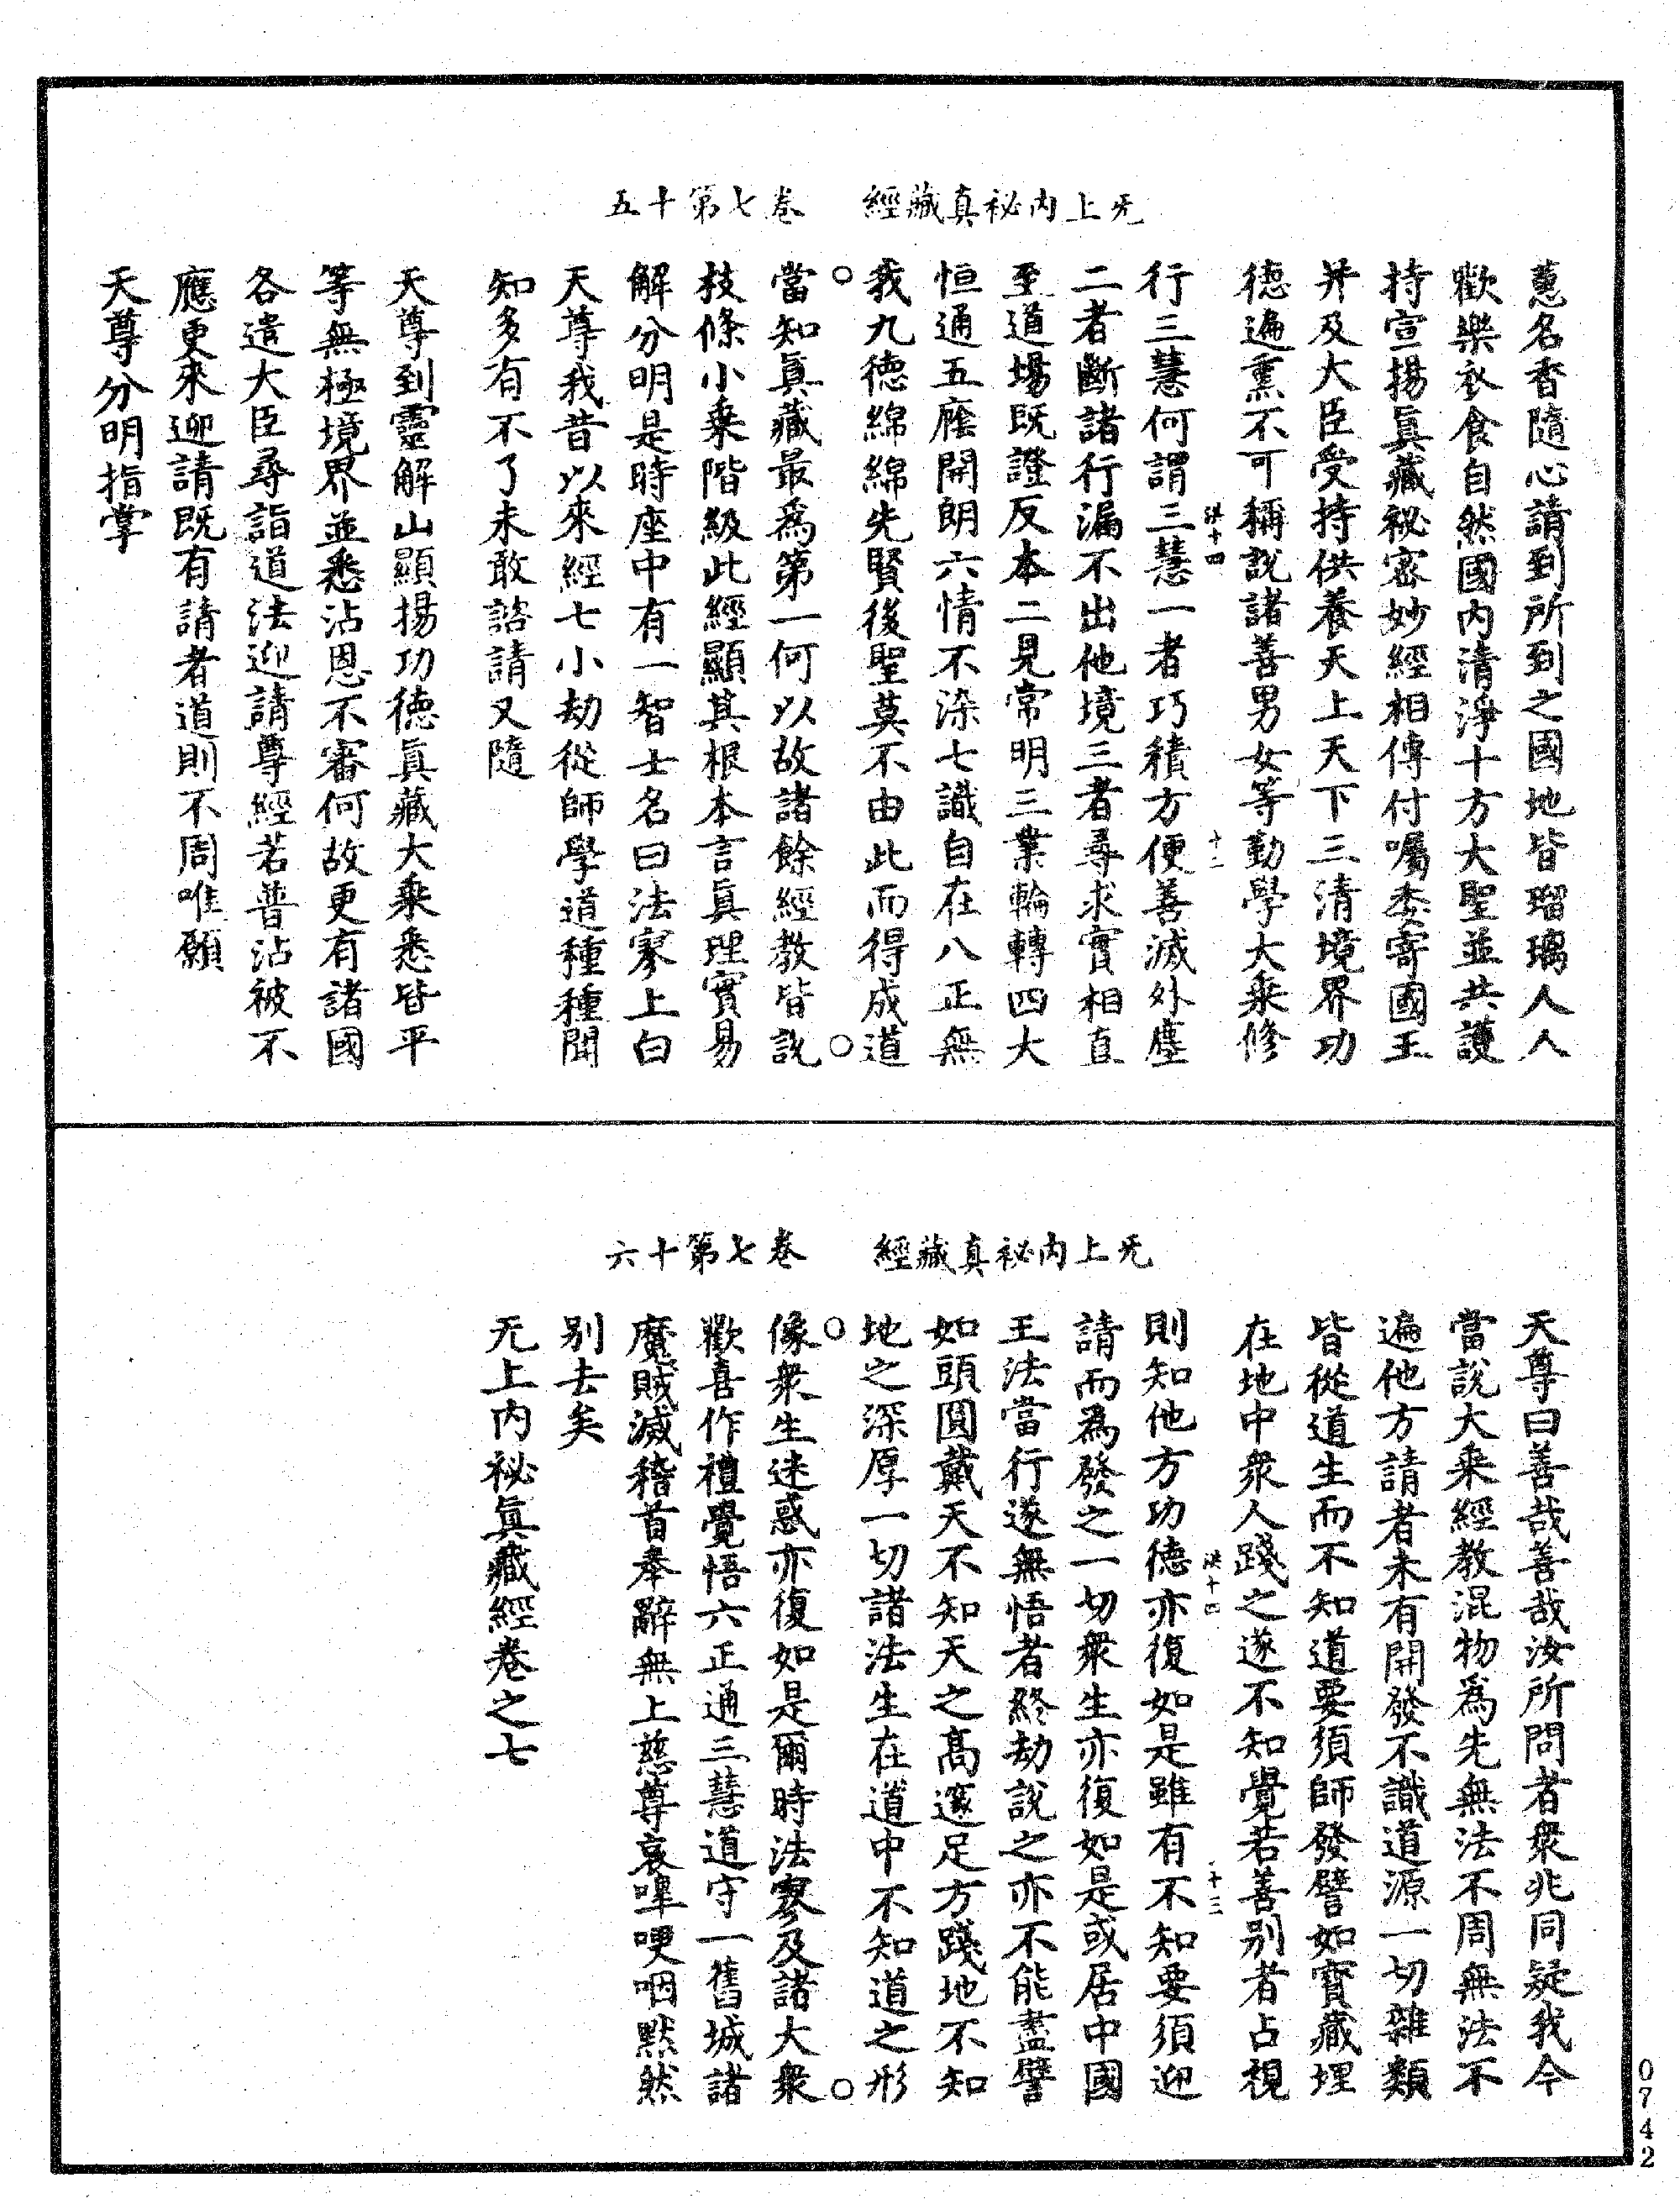 无上內祕真藏經　卷七第十五
蔥名香隨心請到所到之國地皆瑠璃人人
歡樂衣食自然國內清淨十方大聖並共護
持宣揚眞藏祕密妙經相傳付囑委寄國王
并及大臣受持供養天上天下三清境界功
德遍熏不可稱說諸善男女等勤學大乘修
洪十四　十二
行三慧何謂三慧一者巧積方便善滅外塵
二者斷諸行漏不出他境三者尋求實相直
至道場旣證反本二見常明三業輪轉四大
恒通五䧟開朗六情不染七識自在八正無
我九德綿綿先賢後聖莫不由此而得成道
當知眞藏最爲第一何以故諸餘經教皆說
枝條小乘階級此經顯其根本言眞理實易
解分明是時座中有一智士名曰法寥上白
天尊我昔以來經七小劫從師學道種種聞
知多有不了未敢諮請又隨
天尊到靈解山顯揚功德眞藏大乘悉皆平
等無極境界並悉沾恩不審何故更有諸國
各遣大臣尋詣道法迎請尊經若普沾被不
應更來迎請旣有請者道則不周唯願
天尊分明指掌
无上內祕真藏經　卷七第十六
天尊曰善哉善哉汝所問者衆兆同疑我今
當說大乘經教混物爲先無法不周無法不
遍他方請者未有開發不識道源一切雜類
皆從道生而不知道要須師發譬如寶藏埋
在地中衆人踐之遂不知覺若善別者占視
洪十四　十三
則知他方功德亦復如是雖有不知要須迎
請而爲發之一切衆生亦復如是或居中國
王法當行遂無悟者終劫說之亦不能盡譬
如頭圓戴天不知天之高邈足方踐地不知
地之深厚一切諸法生在道中不知道之形
像衆生迷惑亦復如是爾時法寥及諸大衆
歡喜作禮覺悟六正通三慧道守一舊城諸
魔賊滅稽首奉辭無上慈尊哀嘷哽咽默然
別去矣
无上內祕眞藏經卷之七
0742